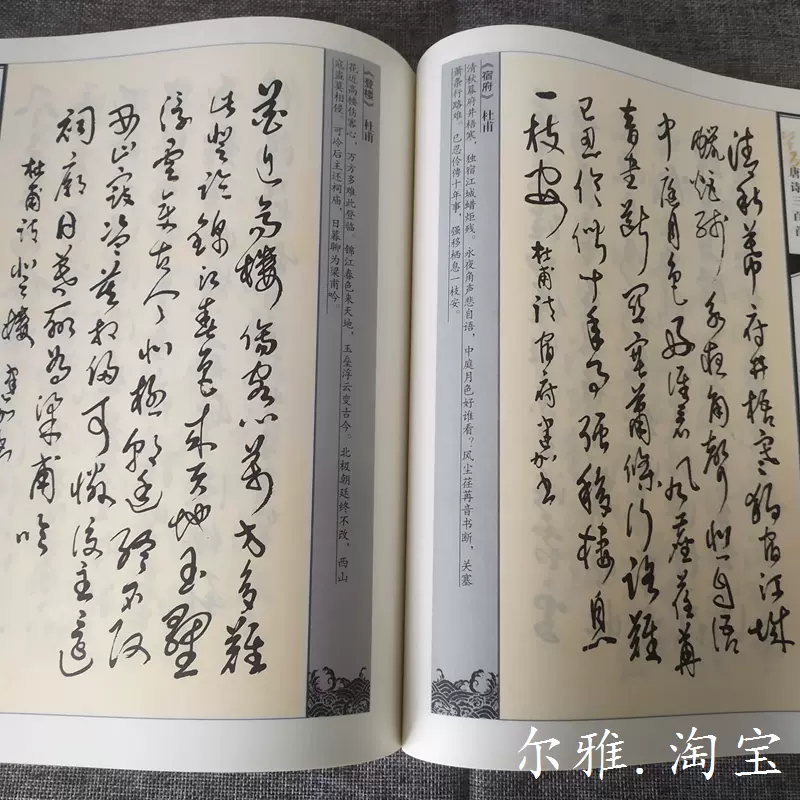 唐诗三百首
清秋幕府井梧寒獨宿江城
蠟炬殘永夜角聲悲自語
中庭月色好誰看風塵荏苒
音書斷關塞蕭條行路難
已忍伶俜十年事強移棲息
一枝安 杜甫詩宿府
《宿府》 杜甫
清秋幕府井梧寒，独宿江城蜡炬残。永夜角声悲自语，中庭月色好谁看？风尘荏苒音书断，关塞
萧条行路难。已忍伶俜十年事，强移栖息一枝安。
《登楼》 杜甫
花近高楼伤客心，万方多难此登临。锦江春色来天地，玉垒浮云变古今。北极朝廷终不改，西山
寇盗莫相侵。可怜后主还祠庙，日暮聊为梁甫吟。
花近高樓傷客心萬方多難
此登臨錦江春色來天地玉壘
浮雲變古今北極朝廷終不改
西山寇盜莫相侵可憐後主還
祠廟日暮聊為梁甫吟
杜甫詩登樓
尔雅.淘宝